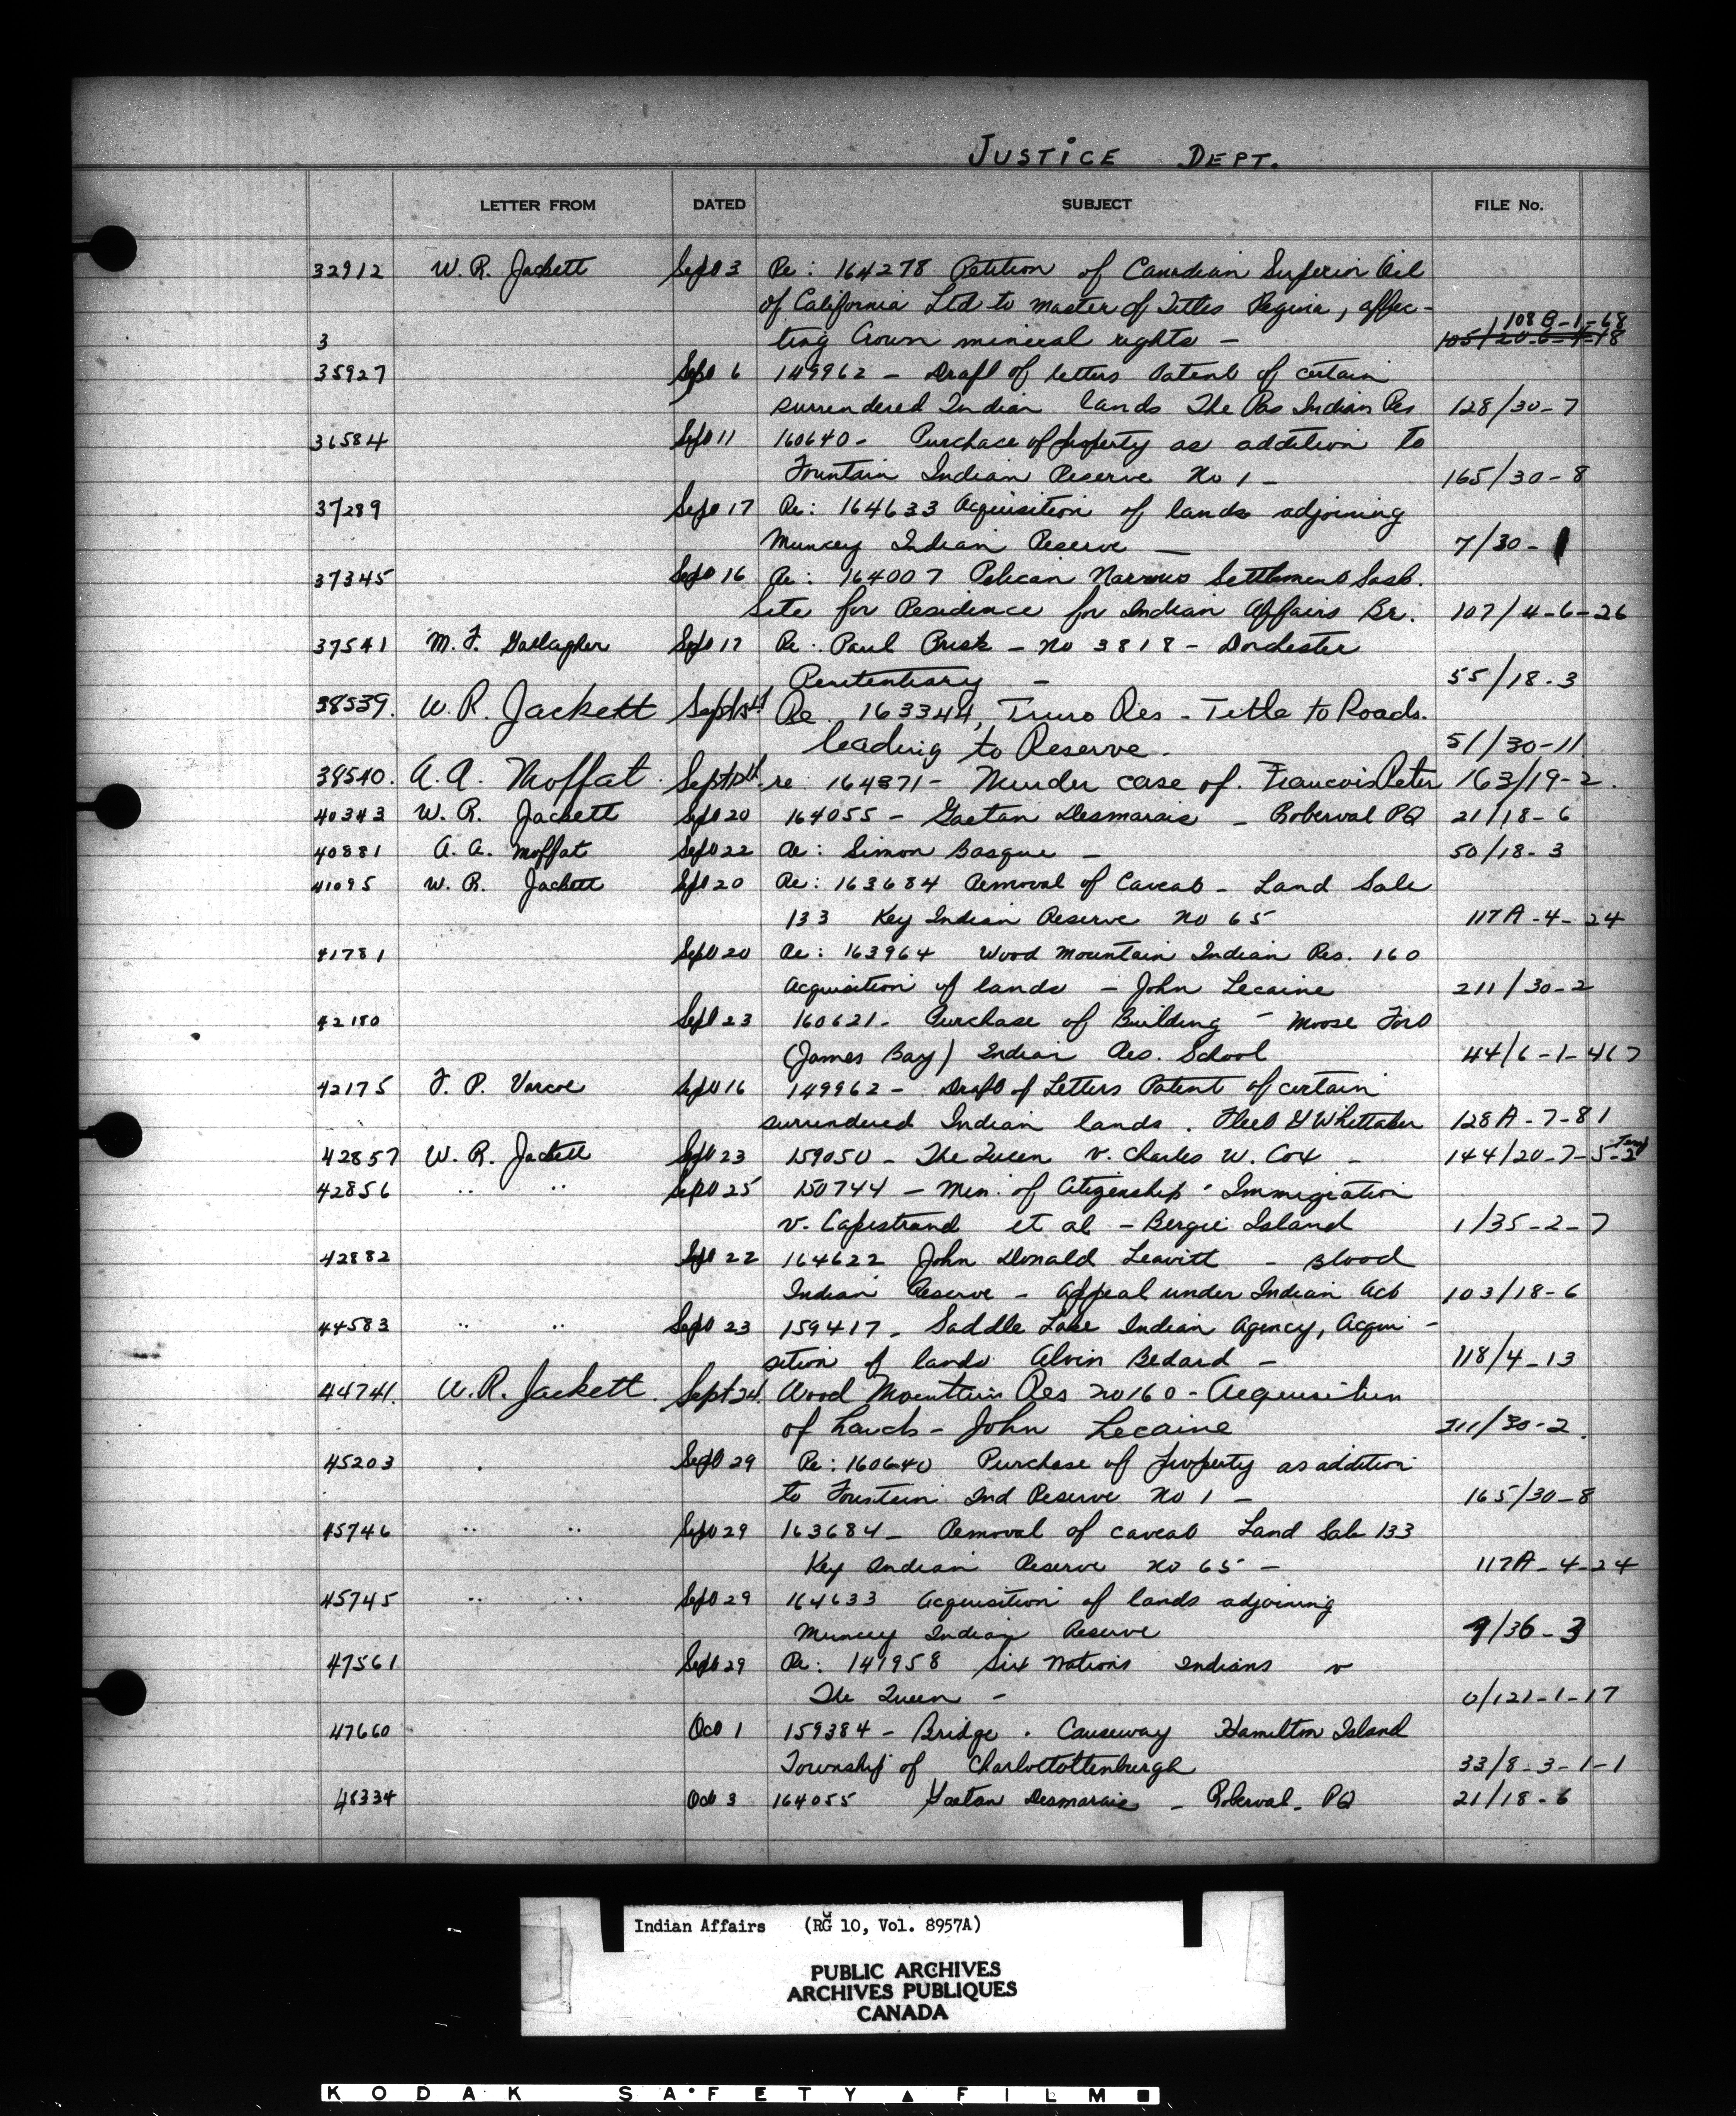 JUSTICE DEPT.
LETTER FROM DATED SUBJECT FILE No.
32912 W. R. Jackett Sept 3 Re: 164278 Petition of Canadian Superior Oil
of California Ltd to Master of Titles Regina, affec-
108 B-1-68
3 ting Crown mineral rights -
35927 Sept 6 149962 - Draft of letters Patent of certain
surrendered Indian lands The Pas Indian Res 128/30-7
36584 Sept 11 160640 - Purchase of property as addition to
Fountain Indian Reserve No 1 - 165/30-8
37289 Sept 17 Re: 164633 Acquisition of lands adjoining
Muncey Indian Reserve - 7/30-1
37345 Sept 16 Re: 164007 Pelican Narrows Settlement Sask.
Site for Residence for Indian Affairs Br. 107/4-6-26
37541 M. F. Gallagher Sept 17 Re: Paul - No 3818 - Dorchester
Penitentiary - 55/18-3
38539. W. R. Jackett Sept Re 163344, Truro Res - Title to Roads.
leading to Reserve. 51/30-11
38540. A. A. Moffat. Sept re 164871 - Murder case of. Francois Peter 163/19-2.
40343 W. R. Jackett Sept 20 164055 - Gaetan Desmarais - Roberval PQ 21/18-6
40881 A. A. Moffat Sept 22 Re: Simon Basque - 50/18-3
41095 W. R. Jackett Sept 20 Re: 163684 Removal of Caveat - Land Sale
133 Key Indian Reserve No 65 117A-4-24
41781 Sept 20 Re: 163964 Wood Mountain Indian Res. 160
Acquisition of lands - John Lecaine 211/30-2
42180 Sept 23 160621 - Purchase of Building - Moose Fort
(James Bay) Indian Res. School 44/6-1-467
42175 F. P. Varcoe Sept 16 149962 - Draft of Letters Patent of certain
surrendered Indian lands. Whittaker 128A-7-81
42857 W. R. Jackett Sept 23 159050 - The Queen v. Charles W. Cox - 144/20-7-5-2 Temp
42856 " " Sept 25 150744 - Min. of Citizenship & Immigration
v. Capestrand et al - Bergie Island 1/35-2-7
42882 Sept 22 164622 John Donald Leavitt - Blood
Indian Reserve - Appeal under Indian Act 103/18-6
44583 " " Sept 23 159417 - Saddle Lake Indian Agency, Acqui-
sition of lands Alvin Bedard - 118/4-13
44741. W. R. Jackett. Sept 24. Wood Mountain Res No 160 - Acquisition
of Lands - John Lecaine 211/30-2.
45203 Sept 29 Re: 160640 Purchase of property as addition
to Fountain Ind Reserve No 1 - 165/30-8
45746 " " Sept 29 163684 - Removal of caveat Land Sale 133
Key Indian Reserve No 65 - 117A-4-24
45745 " " Sept 29 164633 Acquisition of lands adjoining
Muncey Indian Reserve 7/36-3
47561 Sept 29 Re: 141958 Six Nations Indians v
The Queen - 0/121-1-17
47660 Oct 1 159384 - Bridge & Causeway Hamilton Island
Township of Charlottottenburgh 33/8-3-1-1
48334 Oct 3 164055 Gaetan Desmarais - Roberval - PQ 21/18-6
Indian Affairs (RG 10, Vol. 8957A)
PUBLIC ARCHIVES
ARCHIVES PUBLIQUES
CANADA
KODAK SAFETY FILM